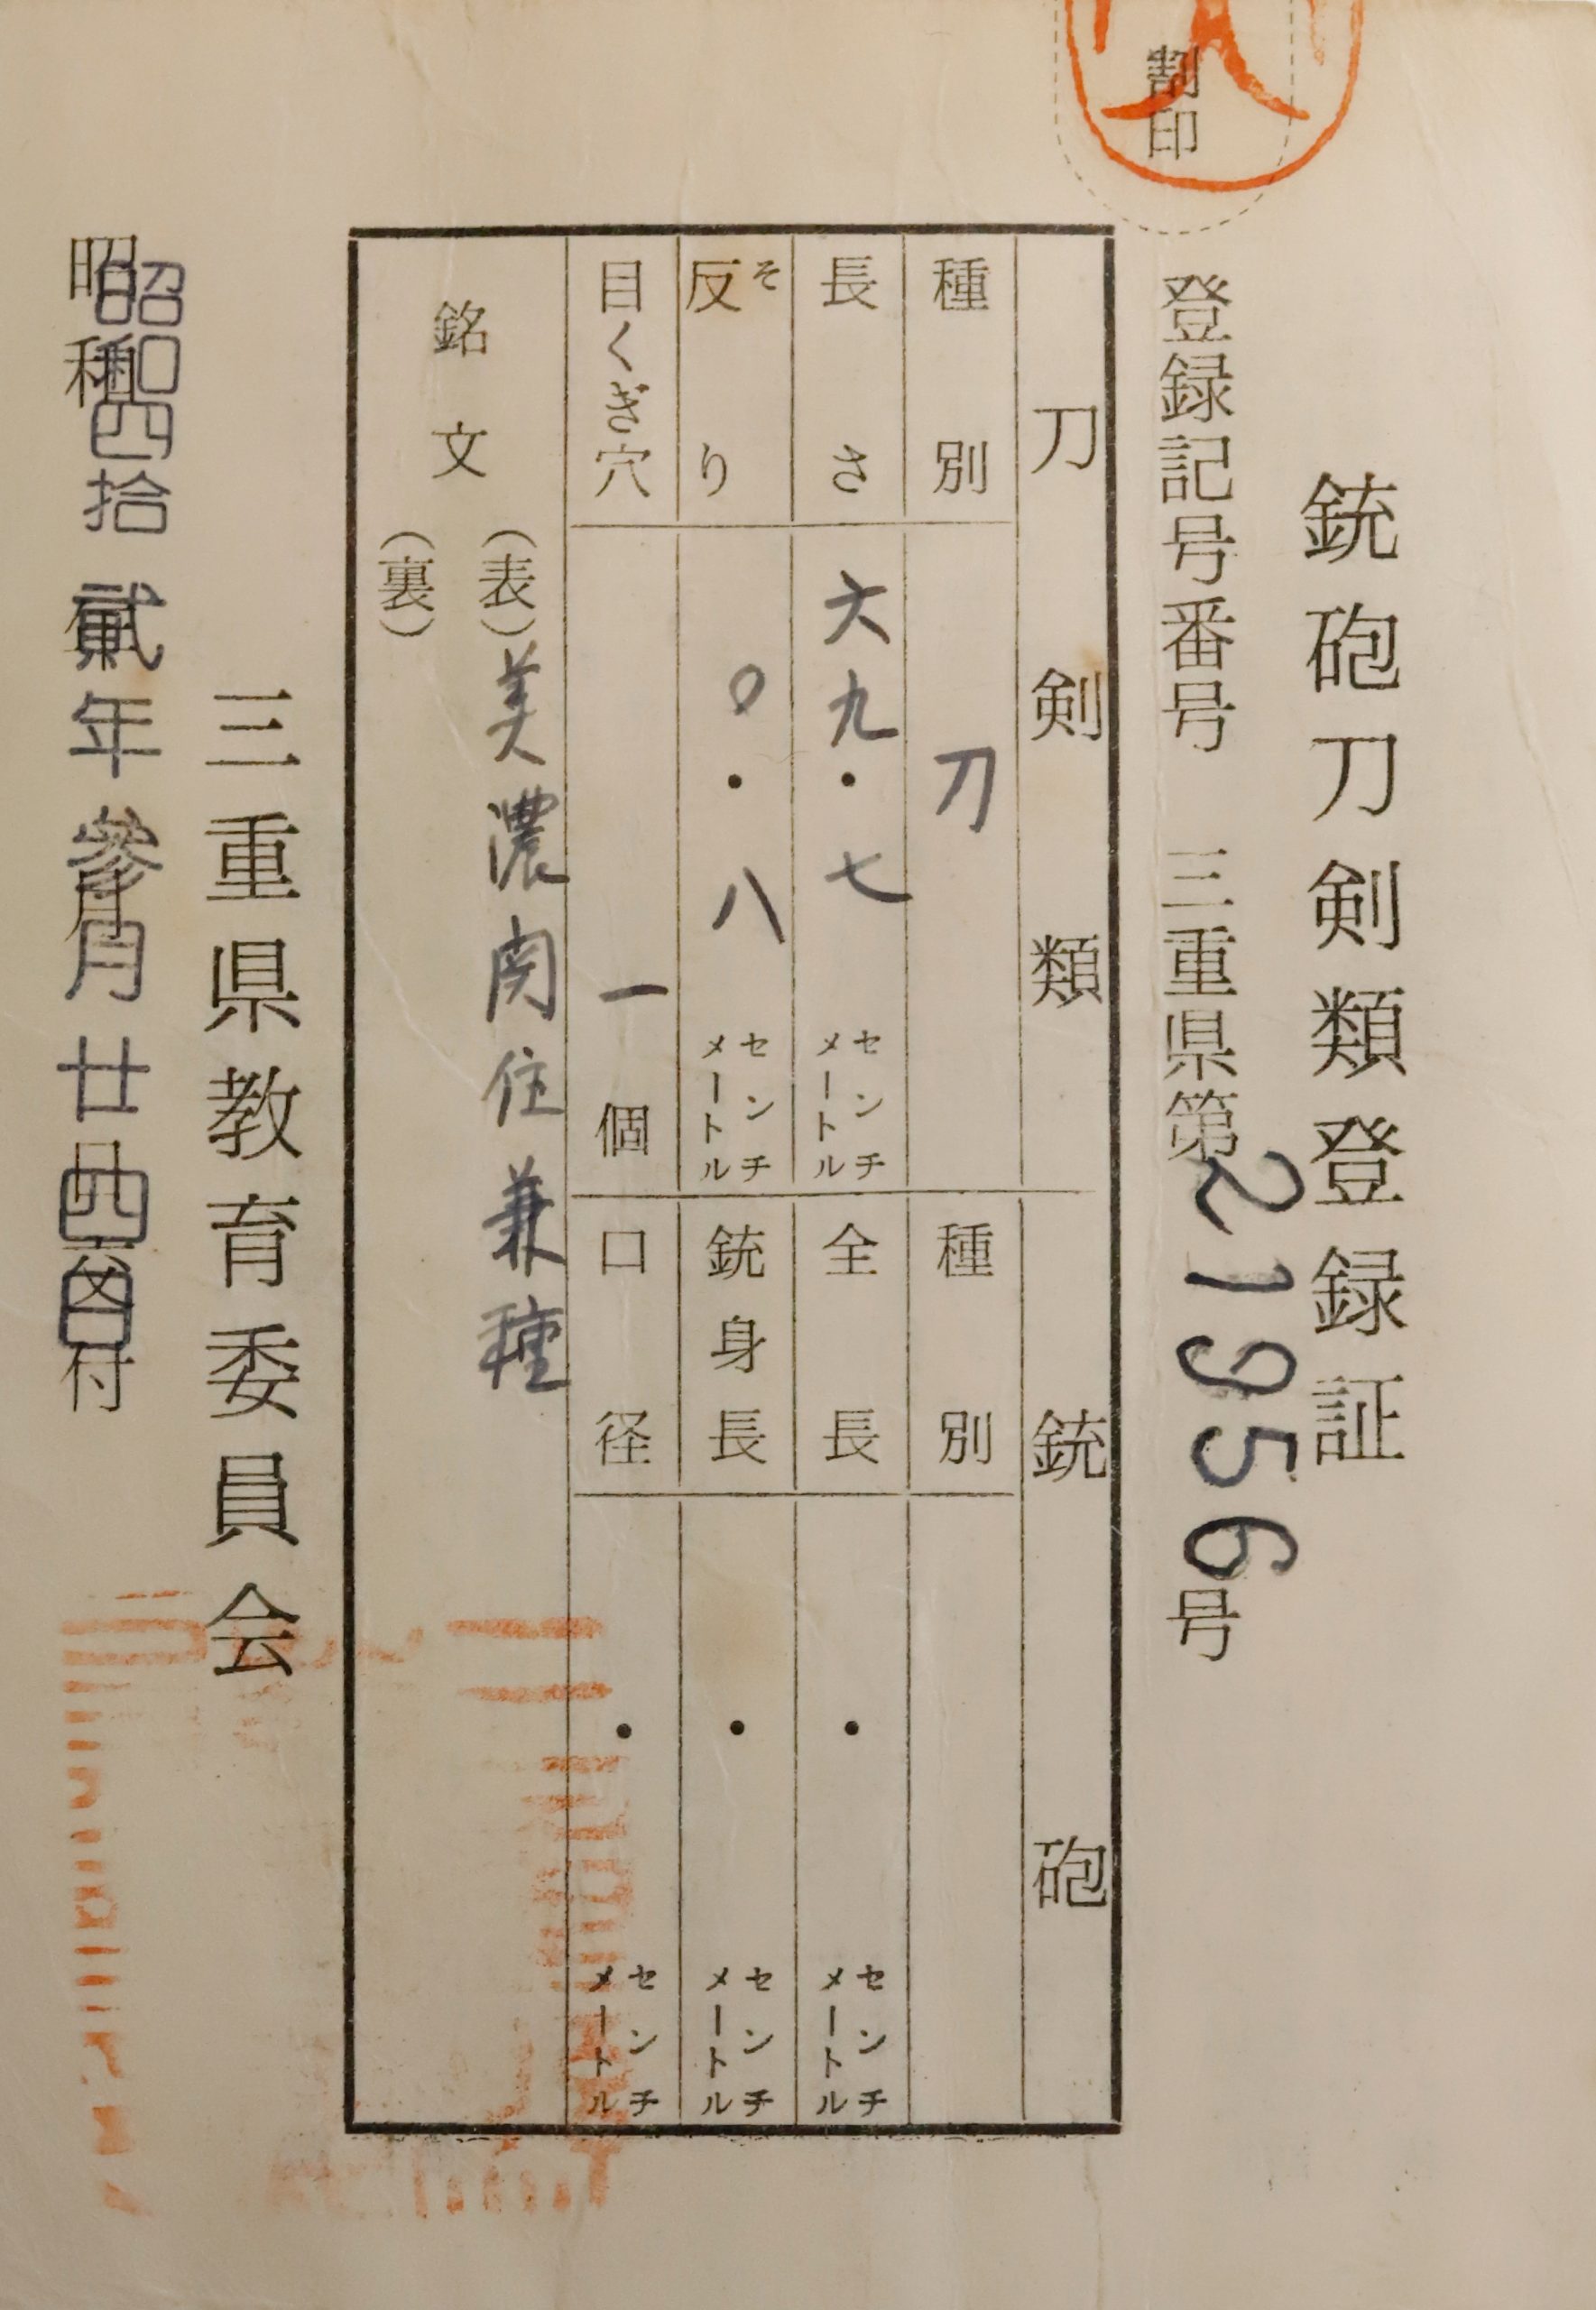 銃砲刀剣類登録証
割印
登録記号番号 三重県第21956号
刀剣類
銃砲
種別 刀
種別
長さ 六九・七 センチメートル
全長 ・ センチメートル
反り そ 〇・八 センチメートル
銃身長 ・ センチメートル
目くぎ穴 一個
口径 ・ センチメートル
銘文
(表)美濃関住兼種
(裏)
三重県教育委員会
昭和四拾貳年参月廿四日付